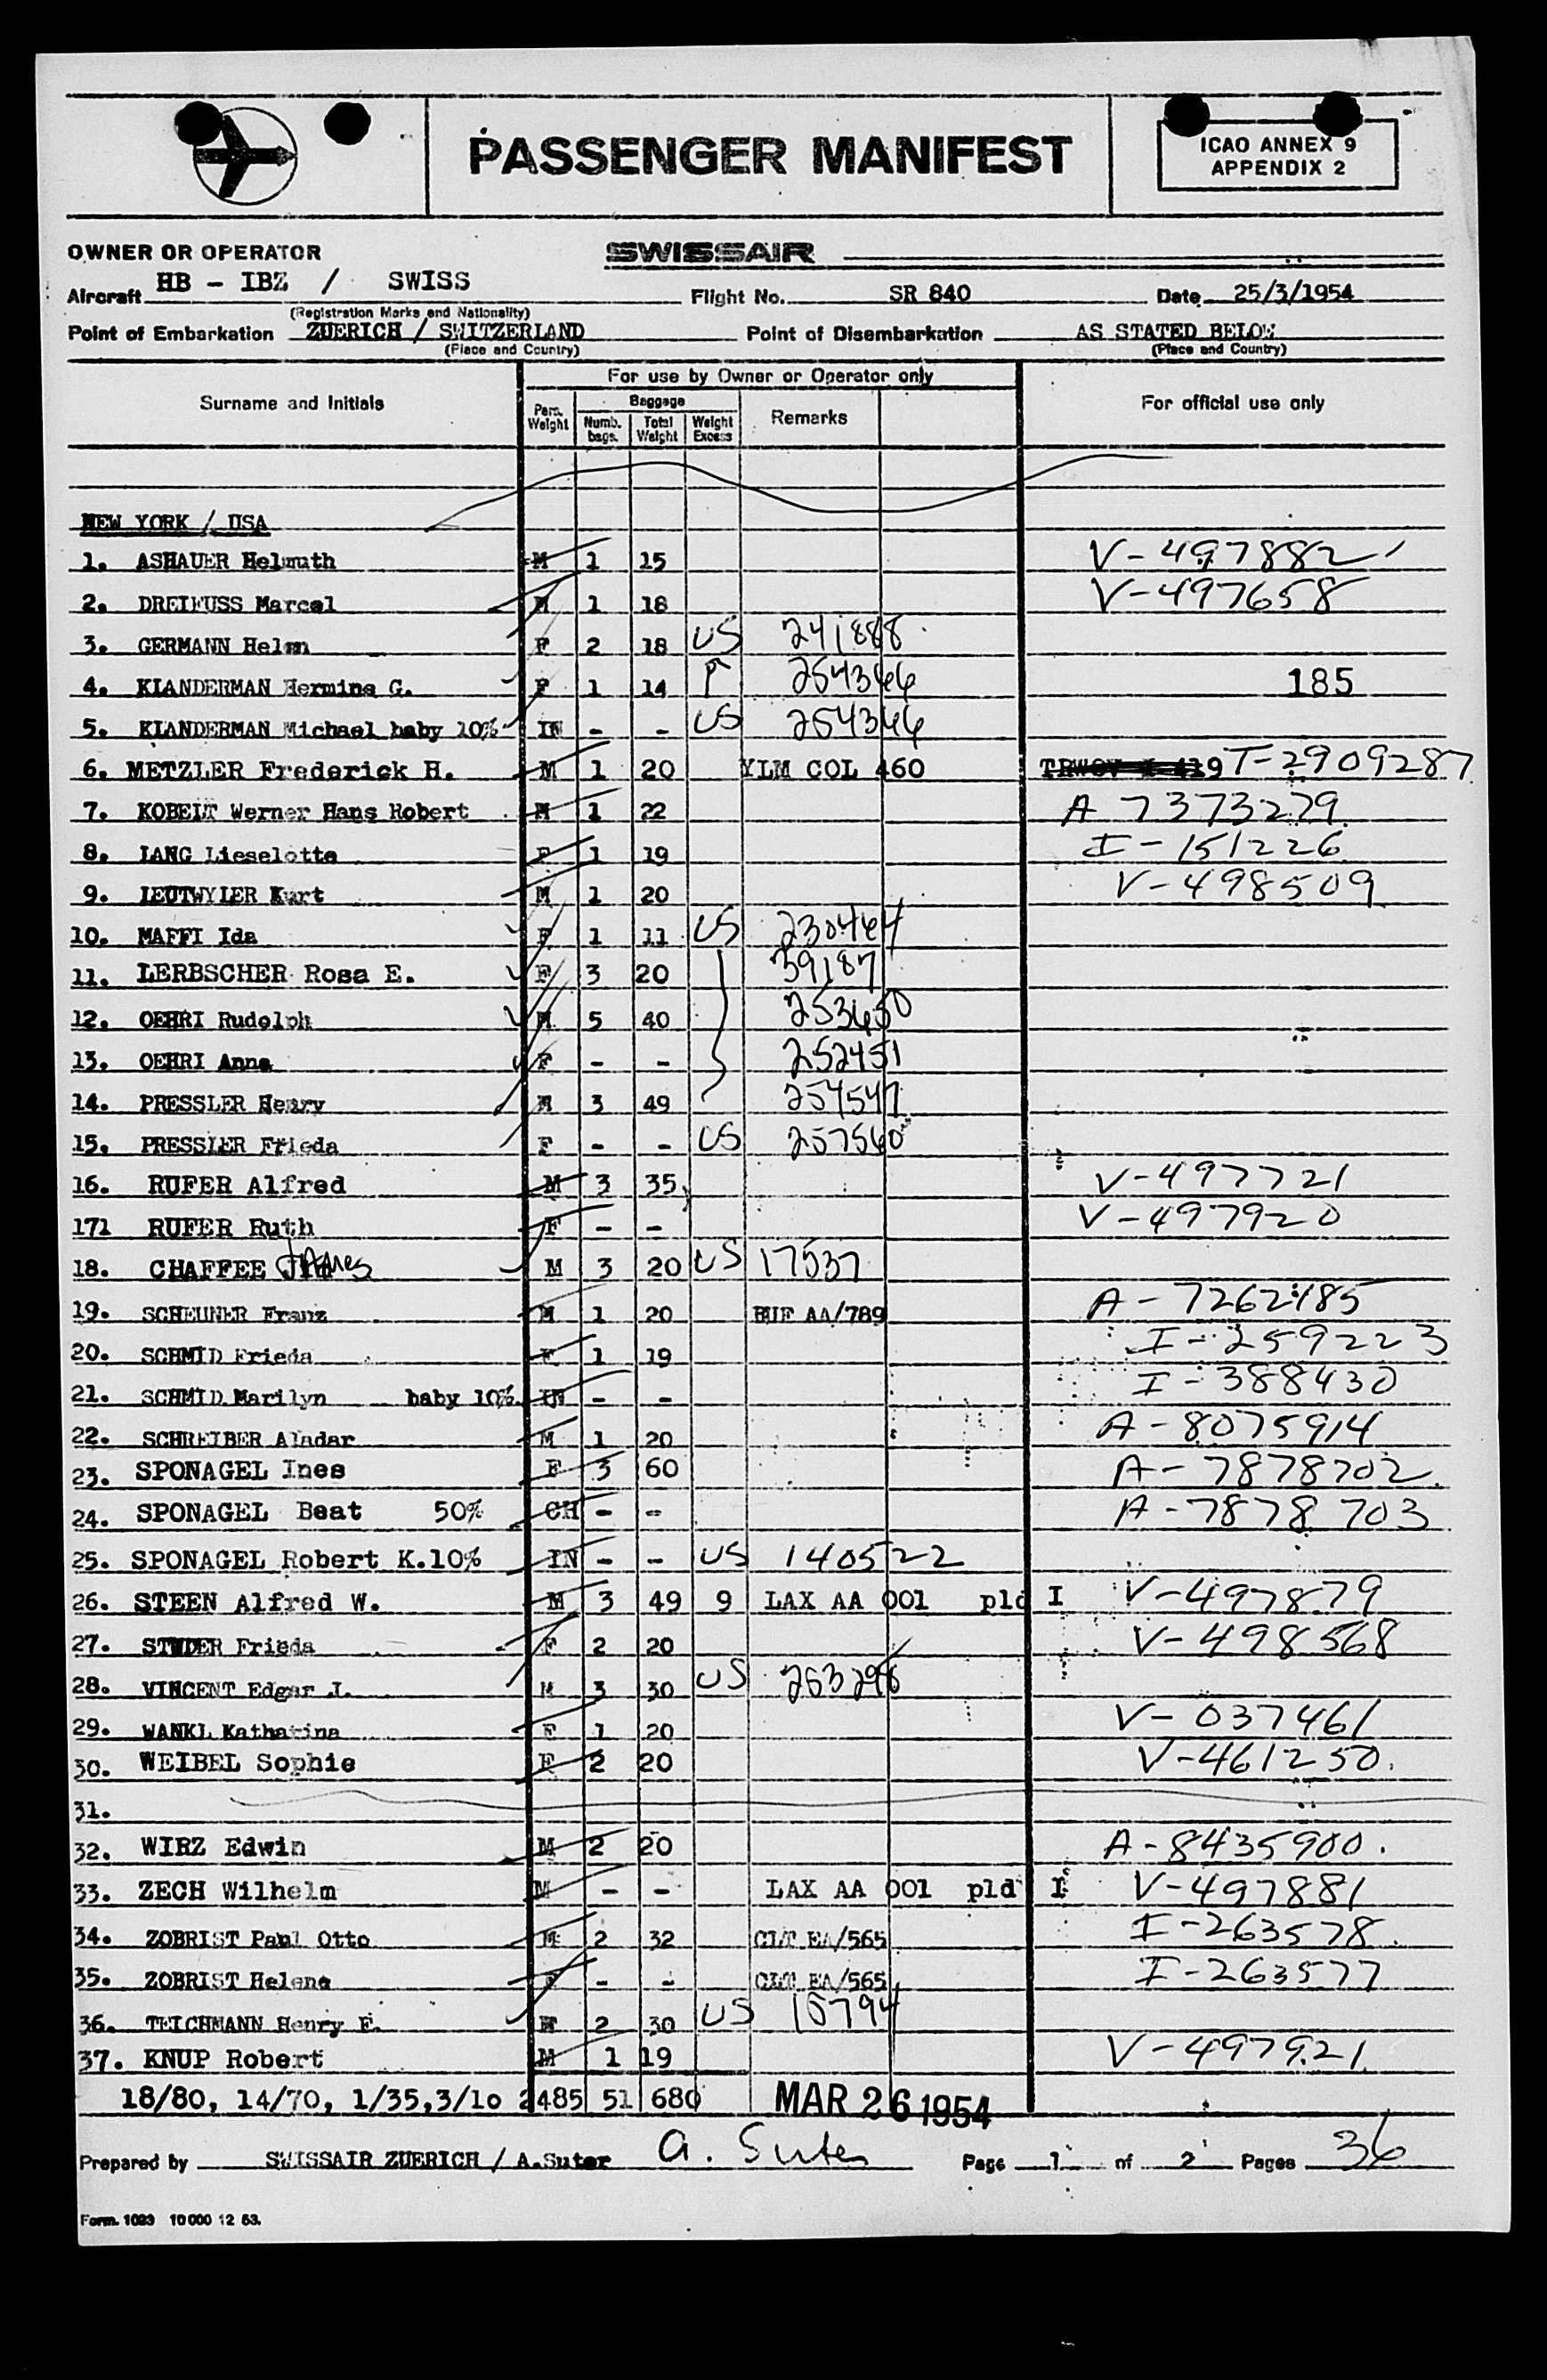 PASSENGER MANIFEST
ICAO ANNEX 9
APPENDIX 2
OWNER OR OPERATOR SWISSAIR
Aircraft HB - IBZ / SWISS Flight No. SR 840 Date 25/3/1954
(Registration Marks and Nationality)
Point of Embarkation ZUERICH / SWITZERLAND Point of Disembarkation AS STATED BELOW
(Place and Country) (Place and Country)
For use by Owner or Operator only
Surname and Initials Pers. Weight Baggage Numb. bags. Total Weight Weight Excess Remarks For official use only
NEW YORK / USA
1. ASHAUER Helmuth M 1 15 V-497882
2. DREIFUSS Marcel M 1 18 V-497658
3. GERMANN Helen F 2 18 US 241888
4. KLANDERMAN Hermina G. F 1 14 254344 185
5. KLANDERMAN Michael baby 10% IN - - US 254344
6. METZLER Frederick H. M 1 20 YLM COL 460 T-2909287
7. KOBELT Werner Hans Robert M 1 22 A 7373279
8. LANG Lieselotte F 1 19 I-151226
9. LEUTWYLER Kurt M 1 20 V-498509
10. MAFFI Ida F 1 11 US 230464
11. LERBSCHER Rosa E. F 3 20 39187
12. OEHRI Rudolph M 5 40 253650
13. OEHRI Anna F - - 252451
14. PRESSLER Henry M 3 49 257547
15. PRESSLER Frieda F - - US 257560
16. RUFER Alfred M 3 35 V-497721
171 RUFER Ruth F - - V-497920
18. CHAFFEE James M 3 20 US 17537
19. SCHEUNER Franz M 1 20 BUF AA/789 A-7262185
20. SCHMID Frieda F 1 19 I-259223
21. SCHMID Marilyn baby 10% IN - - I-388430
22. SCHREIBER Aladar M 1 20 A-8075914
23. SPONAGEL Ines F 3 60 A-7878702
24. SPONAGEL Beat 50% CH - - A-7878703
25. SPONAGEL Robert K.10% IN - - US 140522
26. STEEN Alfred W. M 3 49 9 LAX AA 001 pld I V-497879
27. STUDER Frieda F 2 20 V-498568
28. VINCENT Edgar J. M 3 30 US 253296
29. WANKL Katharina F 1 20 V-037461
30. WEIBEL Sophie F 2 20 V-461250.
31.
32. WIRZ Edwin M 2 20 A-8435900.
33. ZECH Wilhelm M - - LAX AA 001 pld I V-497881
34. ZOBRIST Paul Otto M 2 32 CLT EA/565 I-263578
35. ZOBRIST Helena F - - CLT EA/565 I-263577
36. TEICHMANN Henry F. M 2 30 US 15794
37. KNUP Robert M 1 19 V-497921
18/80, 14/70, 1/35,3/10 2485 51 680 MAR 26 1954
Prepared by SWISSAIR ZUERICH / A.Suter A. Suter Page 1 of 2 Pages 36
Form. 1023 10000 12 53.